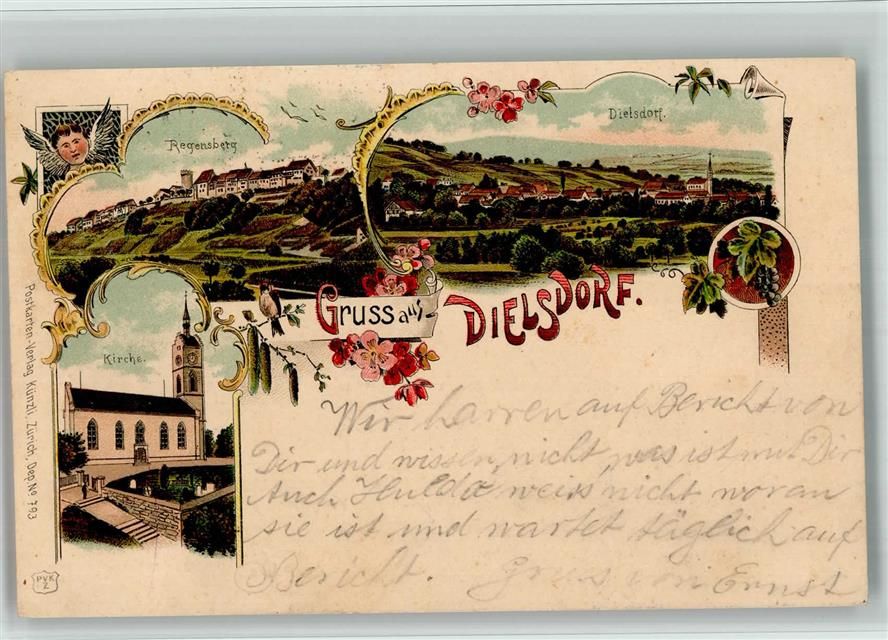 Regensberg
Dielsdorf.
Gruss aus
DIELSDORF.
Kirche.
Postkarten-Verlag Künzli, Zürich, Dep. No 793
PVK
Z
Wir harren auf Bericht von
Dir und wissen nicht was ist mit Dir
Auch Hulda weiss nicht woran
sie ist und wartet täglich auf
Bericht. Gruss von Ernst